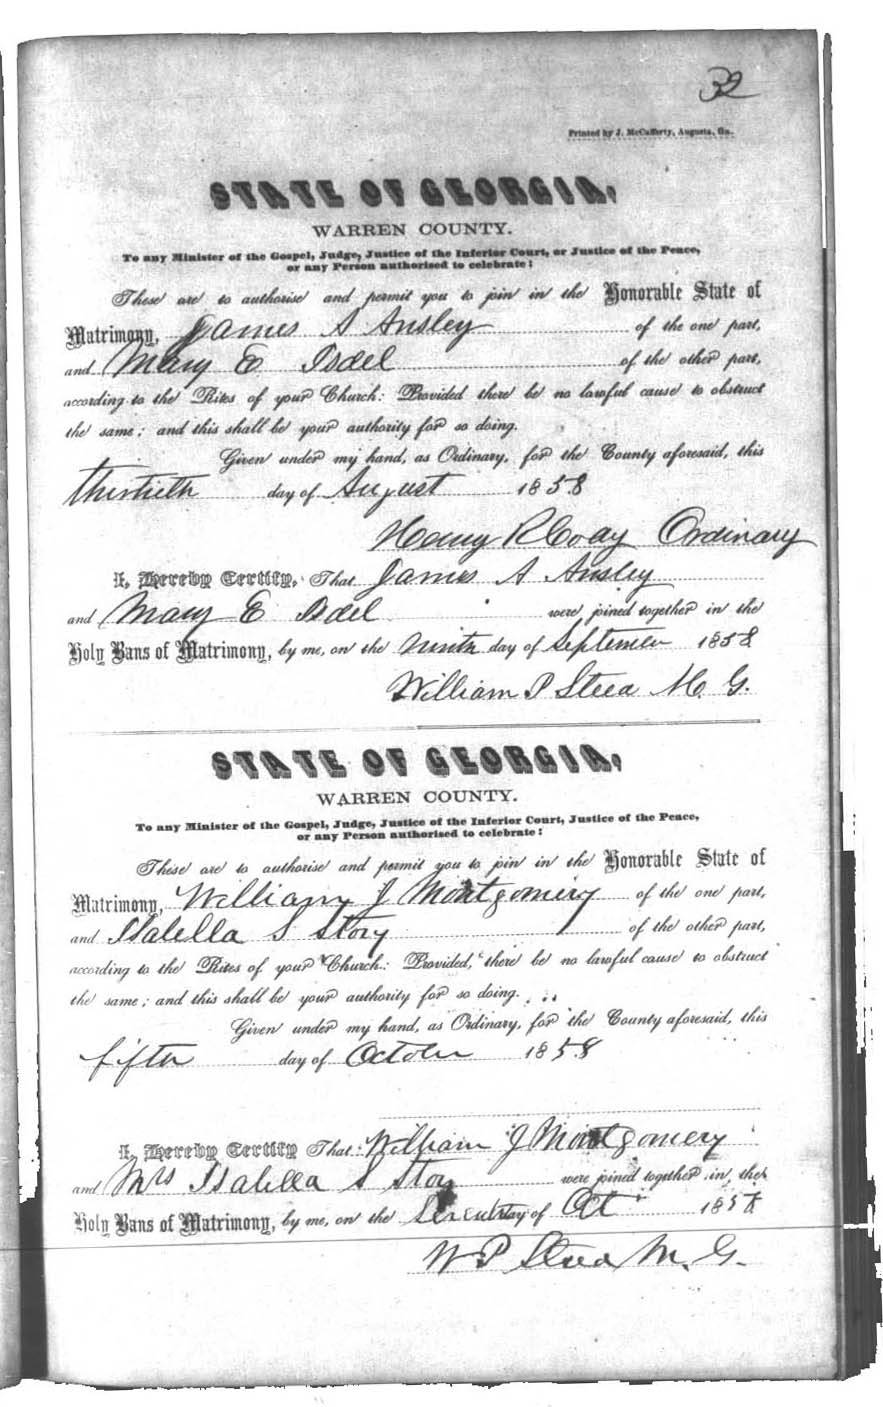 32
Printed by J. McCafferty, Augusta, Ga.
STATE OF GEORGIA,
WARREN COUNTY.
To any Minister of the Gospel, Judge, Justice of the Inferior Court, or Justice of the Peace,
or any Person authorised to celebrate:
These are to authorise and permit you to join in the Honorable State of
Matrimony, James A Ansley of the one part,
and Mary E Isdel of the other part,
according to the Rites of your Church: Provided there be no lawful cause to obstruct
the same; and this shall be your authority for so doing.
Given under my hand, as Ordinary, for the County aforesaid, this
thirtieth day of August 1858
Ordinary
I, Hereby Certify, That James A Ansley
and Mary E Isdel were joined together in the
Holy Bans of Matrimony, by me, on the ninth day of September 1858
William P Steed M. G.
STATE OF GEORGIA,
WARREN COUNTY.
To any Minister of the Gospel, Judge, Justice of the Inferior Court, Justice of the Peace,
or any Person authorised to celebrate:
These are to authorise and permit you to join in the Honorable State of
Matrimony, William J Montgomery of the one part,
and Isabella S Story of the other part,
according to the Rites of your Church: Provided, there be no lawful cause to obstruct
the same; and this shall be your authority for so doing.
Given under my hand, as Ordinary, for the County aforesaid, this
fifth day of October 1858
I, Hereby Certify That William J Montgomery
and Mrs Isabella S Story were joined together in the
Holy Bans of Matrimony, by me, on the Seventh day of Oct 1858
W P Steed M. G.